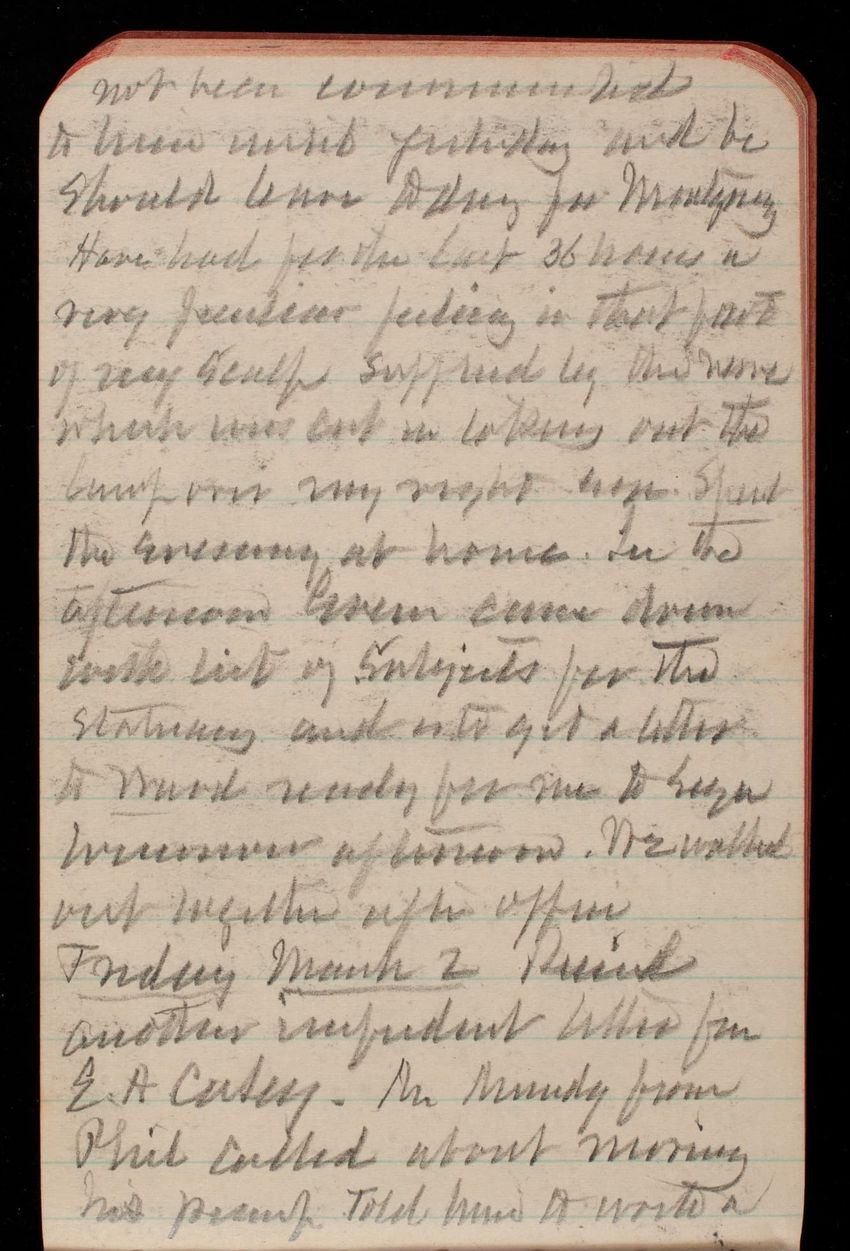 not been communicated
to him until yesterday and he
Should leave today for Montgomery
Have had for the last 36 hours a
very peculiar feeling in that part
of my Scalp supplied by the nerve
which was cut in taking out the
lump over my right eye. Spent
the evening at home. In the
afternoon Green came down
with list of Subjects for the
Statuary and is to get a letter
to Ward ready for me to sign
tomorrow afternoon. We walked
out together after office
Friday March 2 Received
another impudent letter from
E. A Curtis. Mr Mundy from
Phil called about moving
his pump Told him to write a